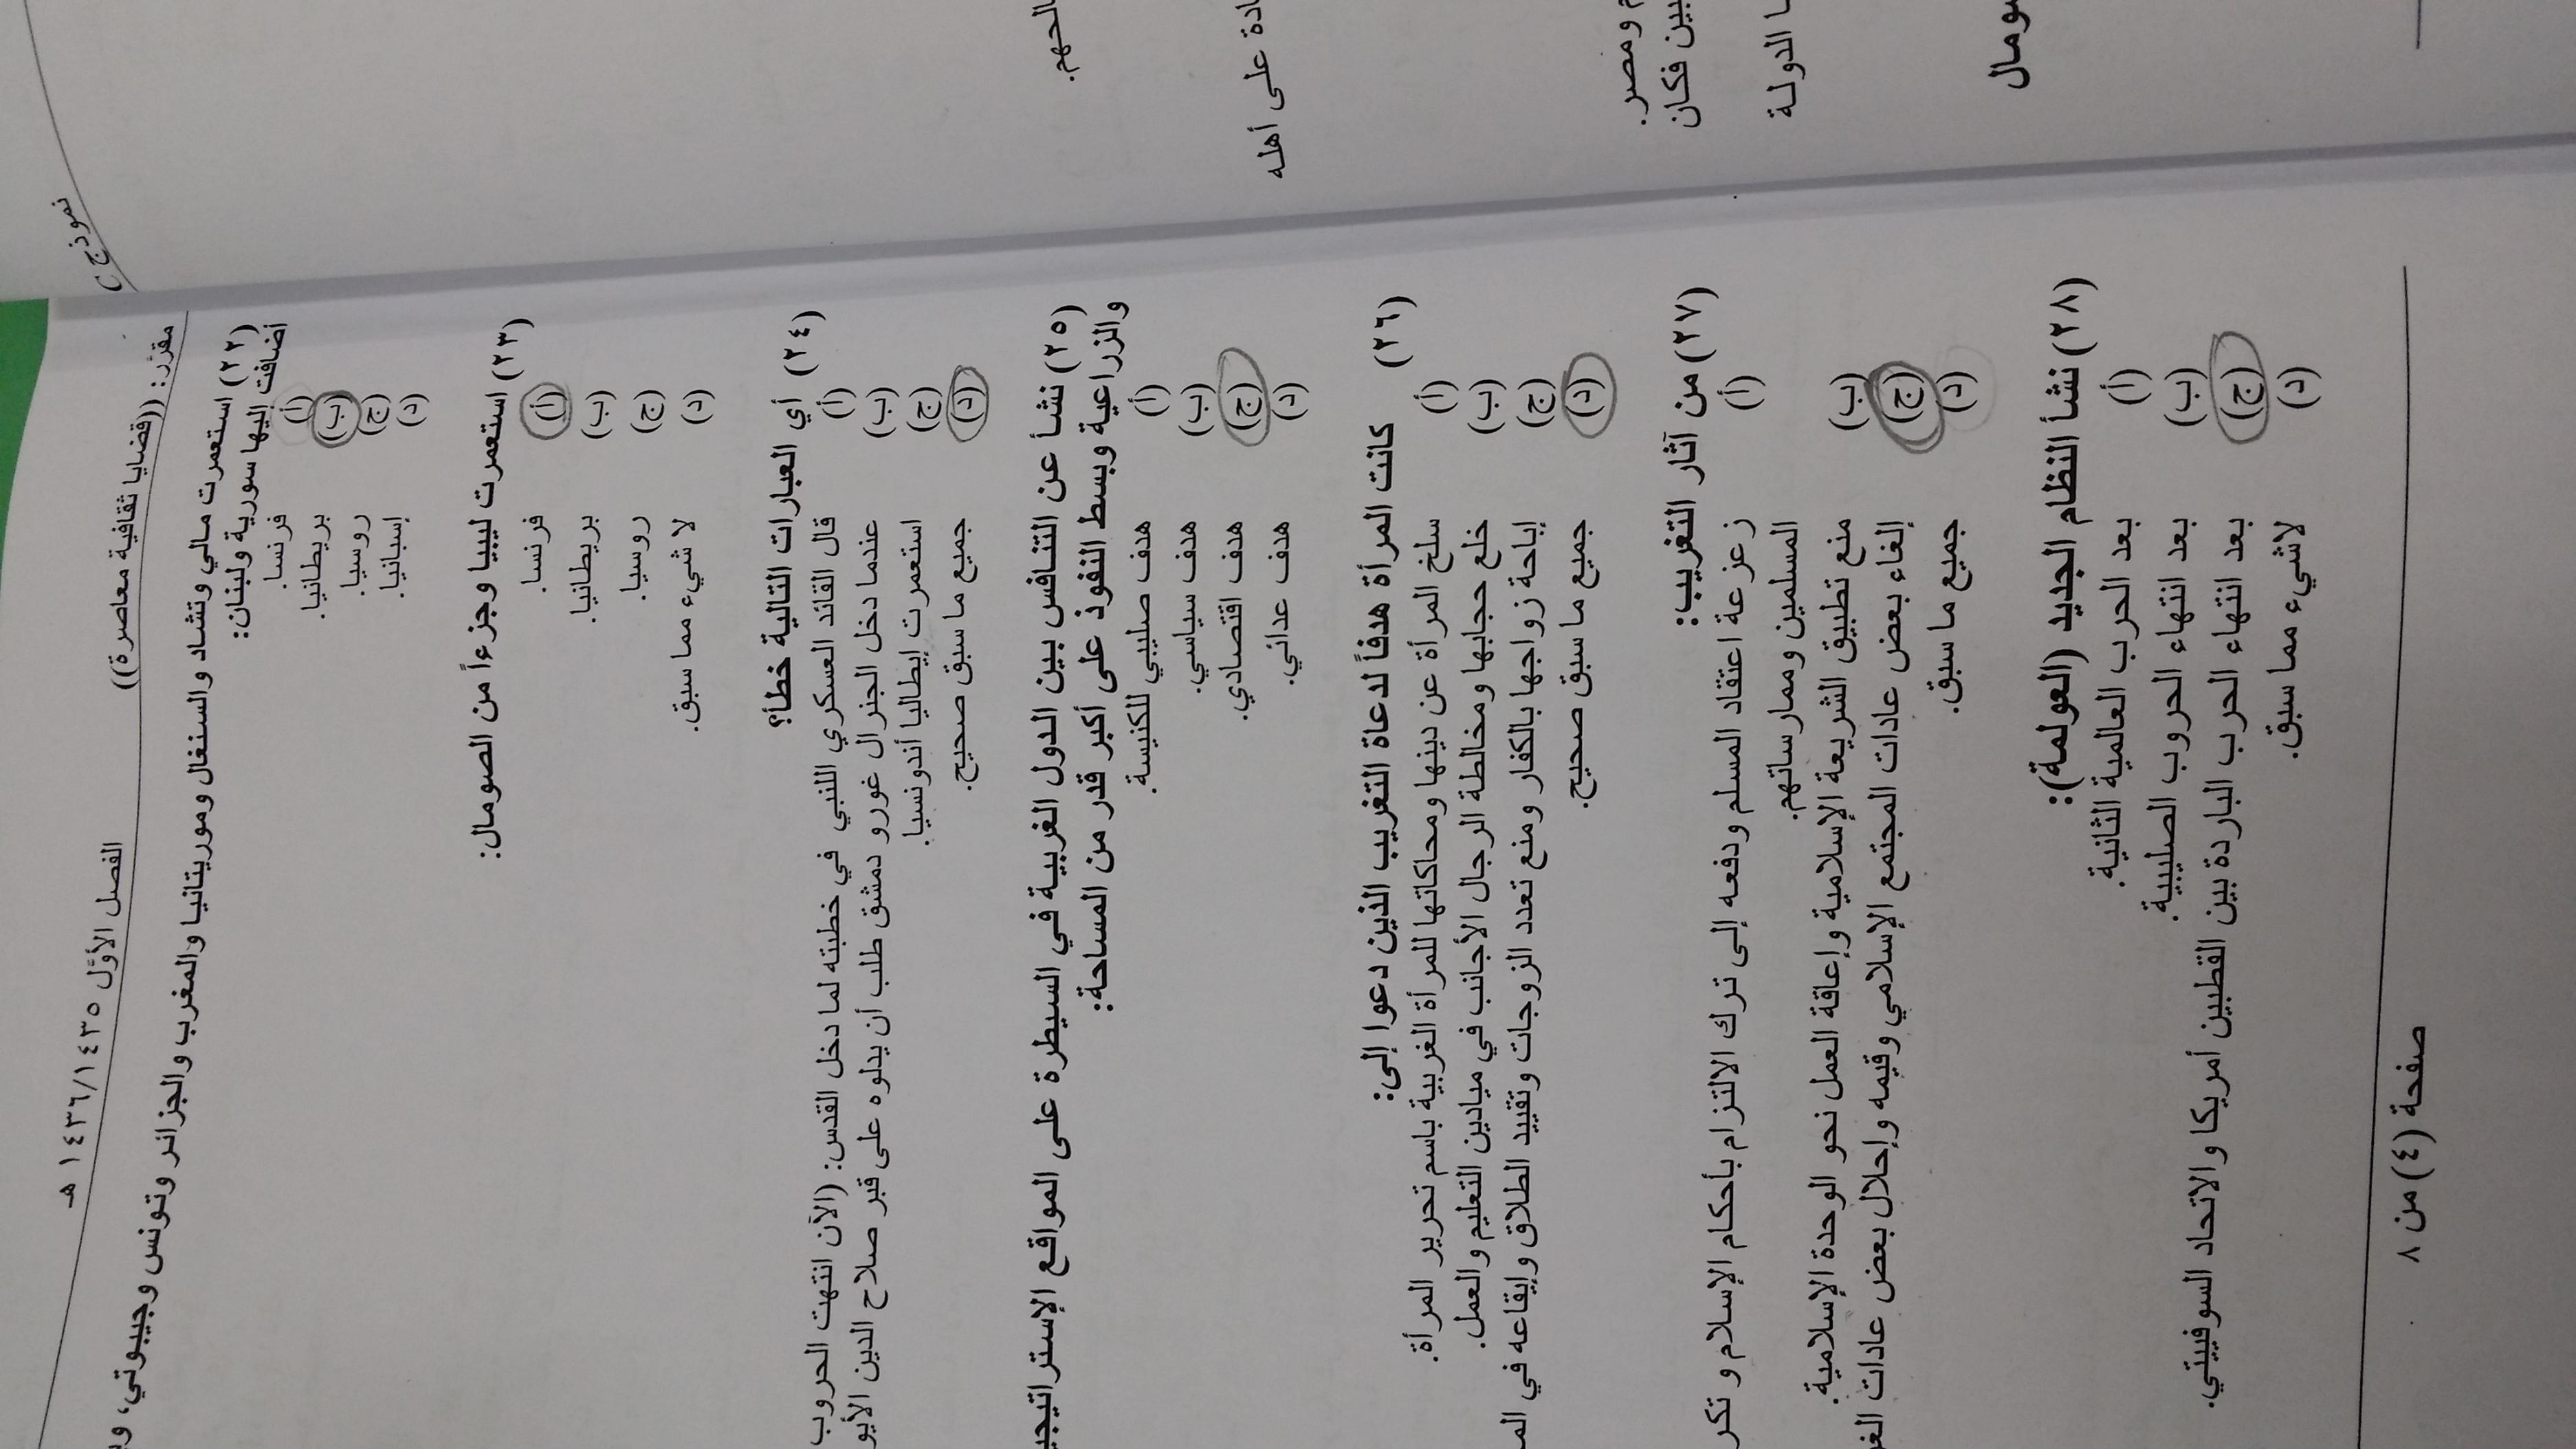 نموذج
مقرّر: ((قضايا ثقافية معاصرة))
الفصل الأوّل ١٤٣٦/١٤٣٥ هـ
(٢٢) استعمرت مالي وتشاد والسنغال وموريتانيا والمغرب والجزائر وتونس وجيبوتي،
أضافت إليها سورية ولبنان:
(أ) فرنسا.
(ب) بريطانيا.
(ج) روسيا.
(د) إسبانيا.
(٢٣) استعمرت ليبيا وجزءاً من الصومال:
(أ) فرنسا.
(ب) بريطانيا.
(ج) روسيا.
(د) لا شيء مما سبق.
(٢٤) أي العبارات التالية خطأ؟
(أ) قال القائد العسكري اللنبي في خطبته لما دخل القدس: (الآن انتهت الحروب
(ب) عندما دخل الجنرال غورو دمشق طلب أن يدلوه على قبر صلاح الدين
(ج) استعمرت إيطاليا أندونسيا.
(د) جميع ما سبق صحيح.
(٢٥) نشأ عن التنافس بين الدول الغربية في السيطرة على المواقع
والزراعية وبسط النفوذ على أكبر قدر من المساحة:
(أ) هدف صليبي للكنيسة.
(ب) هدف سياسي.
(ج) هدف اقتصادي.
(د) هدف عدائي.
(٢٦) كانت المرأة هدفاً لدعاة التغريب الذين دعوا إلى:
(أ) سلخ المرأة عن دينها ومحاكاتها للمرأة الغربية باسم تحرير المرأة.
(ب) خلع حجابها ومخالطة الرجال الأجانب في ميادين التعليم والعمل.
(ج) إباحة زواجها بالكفار ومنع تعدد الزوجات وتقييد الطلاق وإيقاعه في
(د) جميع ما سبق صحيح.
(٢٧) من آثار التغريب:
(أ) زعزعة اعتقاد المسلم ودفعه إلى ترك الالتزام بأحكام الإسلام و
المسلمين وممارساتهم.
(ب) منع تطبيق الشريعة الإسلامية وإعاقة العمل نحو الوحدة الإسلامية.
(ج) إلغاء بعض عادات المجتمع الإسلامي وقيمه وإحلال بعض عادات
(د) جميع ما سبق.
(٢٨) نشأ النظام الجديد (العولمة):
(أ) بعد الحرب العالمية الثانية.
(ب) بعد انتهاء الحروب الصليبية.
(ج) بعد انتهاء الحرب الباردة بين القطبين أمريكا والاتحاد السوفييتي.
(د) لاشيء مما سبق.
صفحة (٤) من ٨
ادة على أهله
ومصر.
بين فكان
الدولة